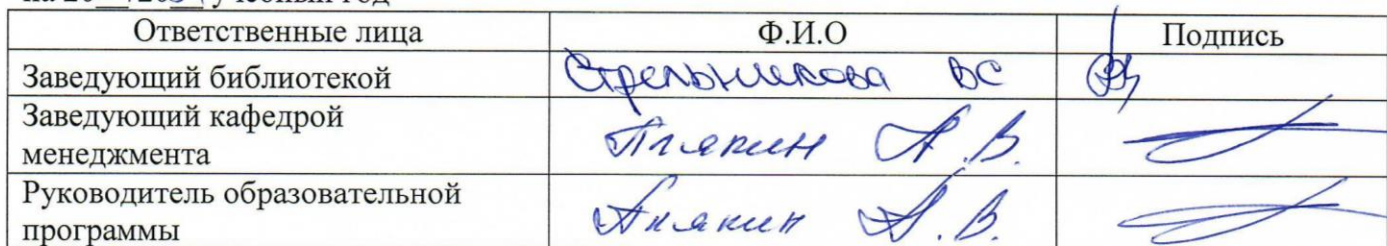 учебный год
Ответственные лица Ф.И.О Подпись
Заведующий библиотекой Стрельникова ВС
Заведующий кафедрой
менеджмента Плякин А.В.
Руководитель образовательной
программы Плякин А.В.